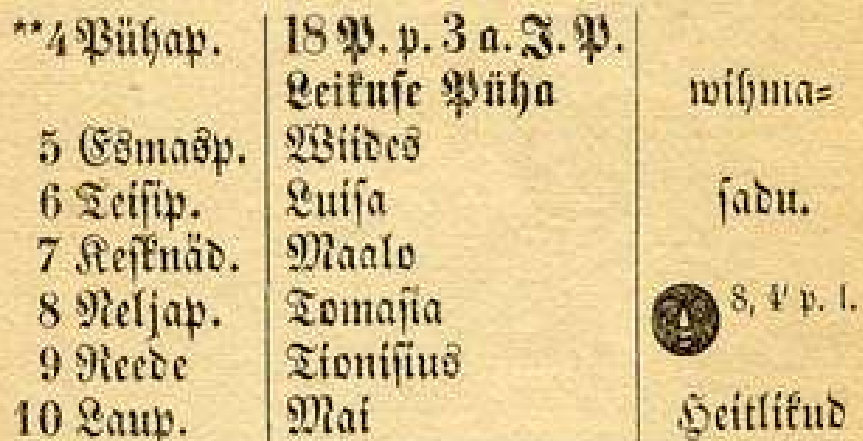 **4 Pühap. 18 P. p. 3 a. J. P.
Leikuse Püha wihma=
5 Esmasp. Wiides
6 Teisip. Luisa sadu.
7 Kesknäd. Maalo
8 Neljap. Tomasia 8, 4' p. l.
9 Reede Tionisius
10 Laup. Mai Heitlikud